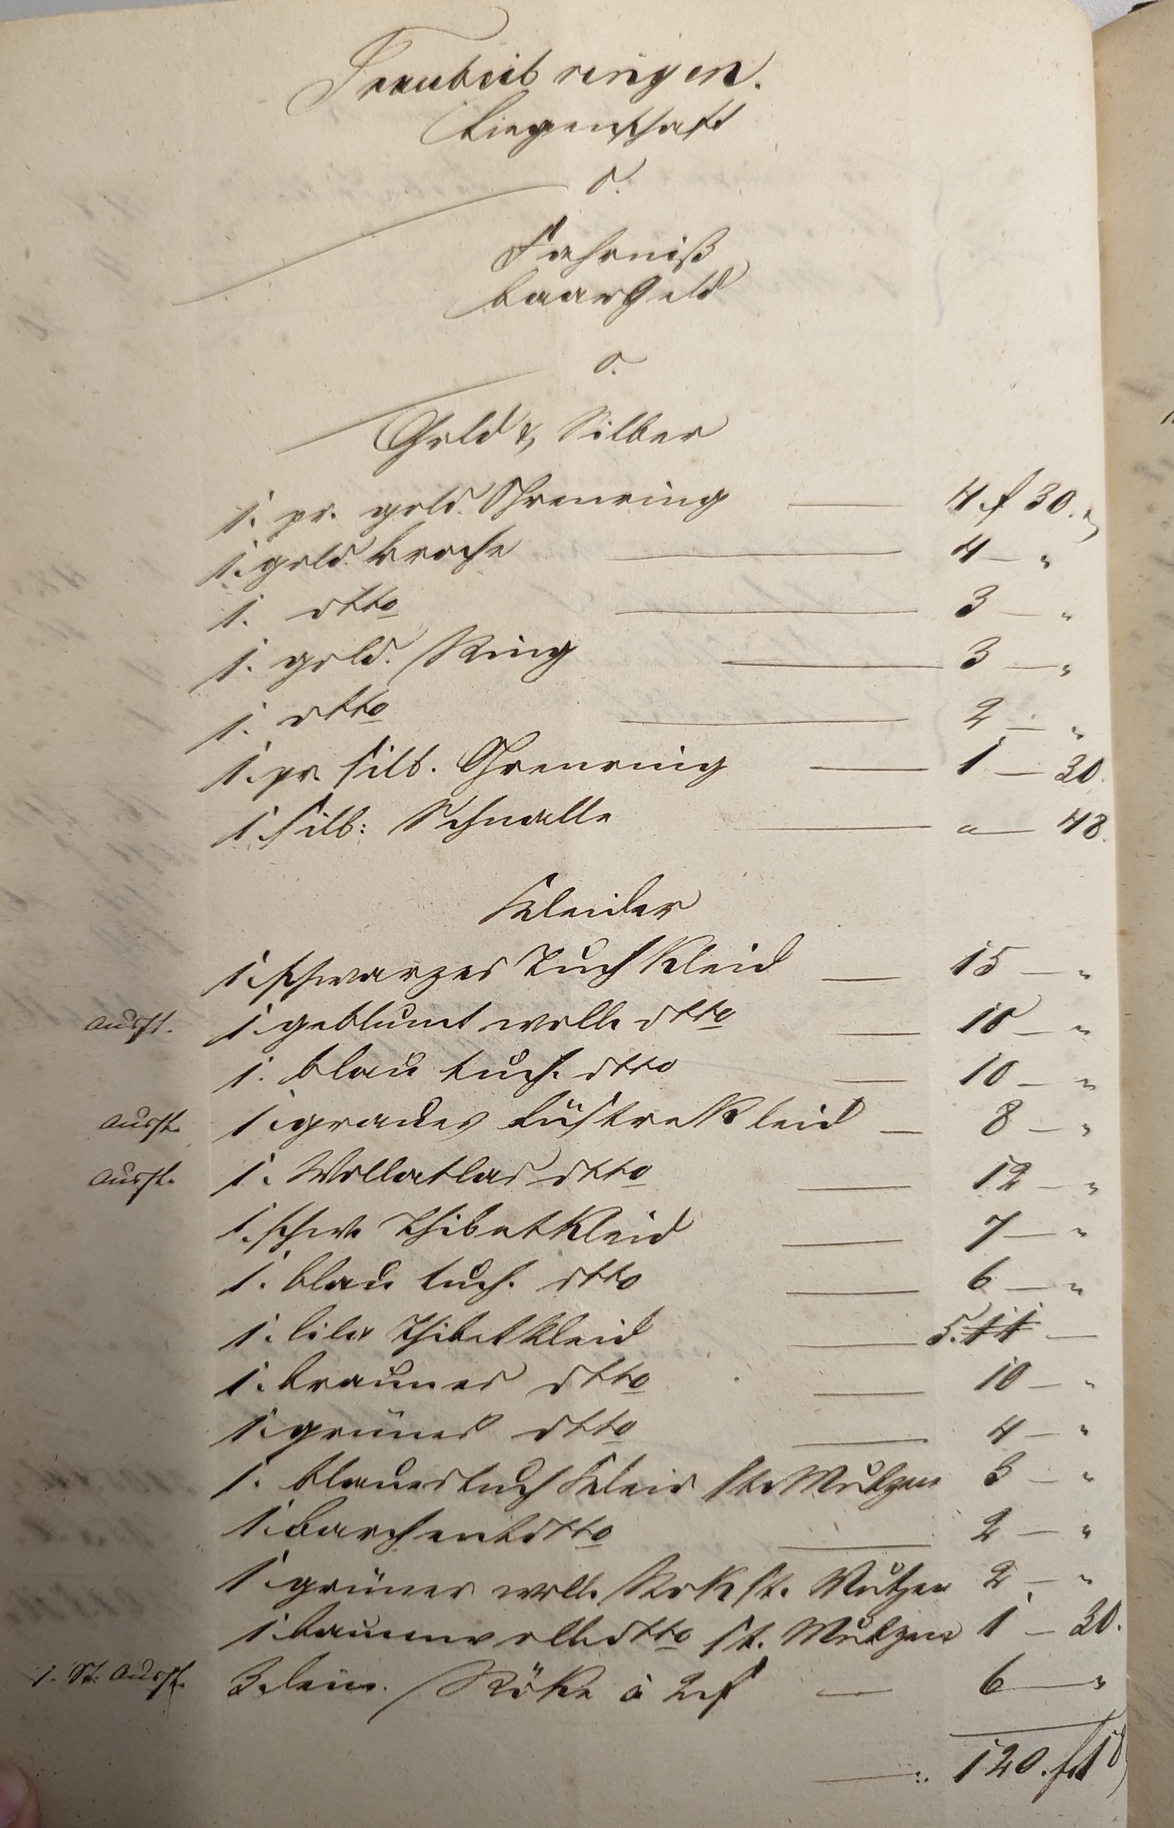 Fraubeibringen.
Liegenschaft
0.
Fahrniß
baar Geld
0.
Gold & Silber
1. pr. gold. Ohrenring — 4 f 30.
1. gold. broche — 4 — "
1. dtto — 3 — "
1. gold. Ring — 3 — "
1. dtto — 2 — "
1. pr. silb. Ohrenring — 1 — 30.
1 silb: Schnalle — " — 48.
Kleider
1. schwarzes Tuch Kleid — 15 — "
Ausst. 1. geblumt woll. dtto — 10 — "
1. blau tuch. dtto — 10 — "
Ausst. 1. graues Lüstre Kleid — 8 — "
Ausst. 1. Wollatlas dtto — 12 — "
1. schw. Thibet Kleid — 7 — "
1. blau tuch. dtto — 6 — "
1. lila Thibet Kleid — 5. 11 —
1. braunes dtto — 10 — "
1. grünes dtto — 4 — "
1. blaues tuch Kleid st. Mutzen 3 — "
1. barchent dtto — 2 — "
1. grüner woll. Rok st. Mutzen 2 — "
1. baumwoll. dtto st. Mutzen 1 — 30.
1. St. Ausst. 3. lein. Röke à 2 f — 6 — "
— 120. f 18